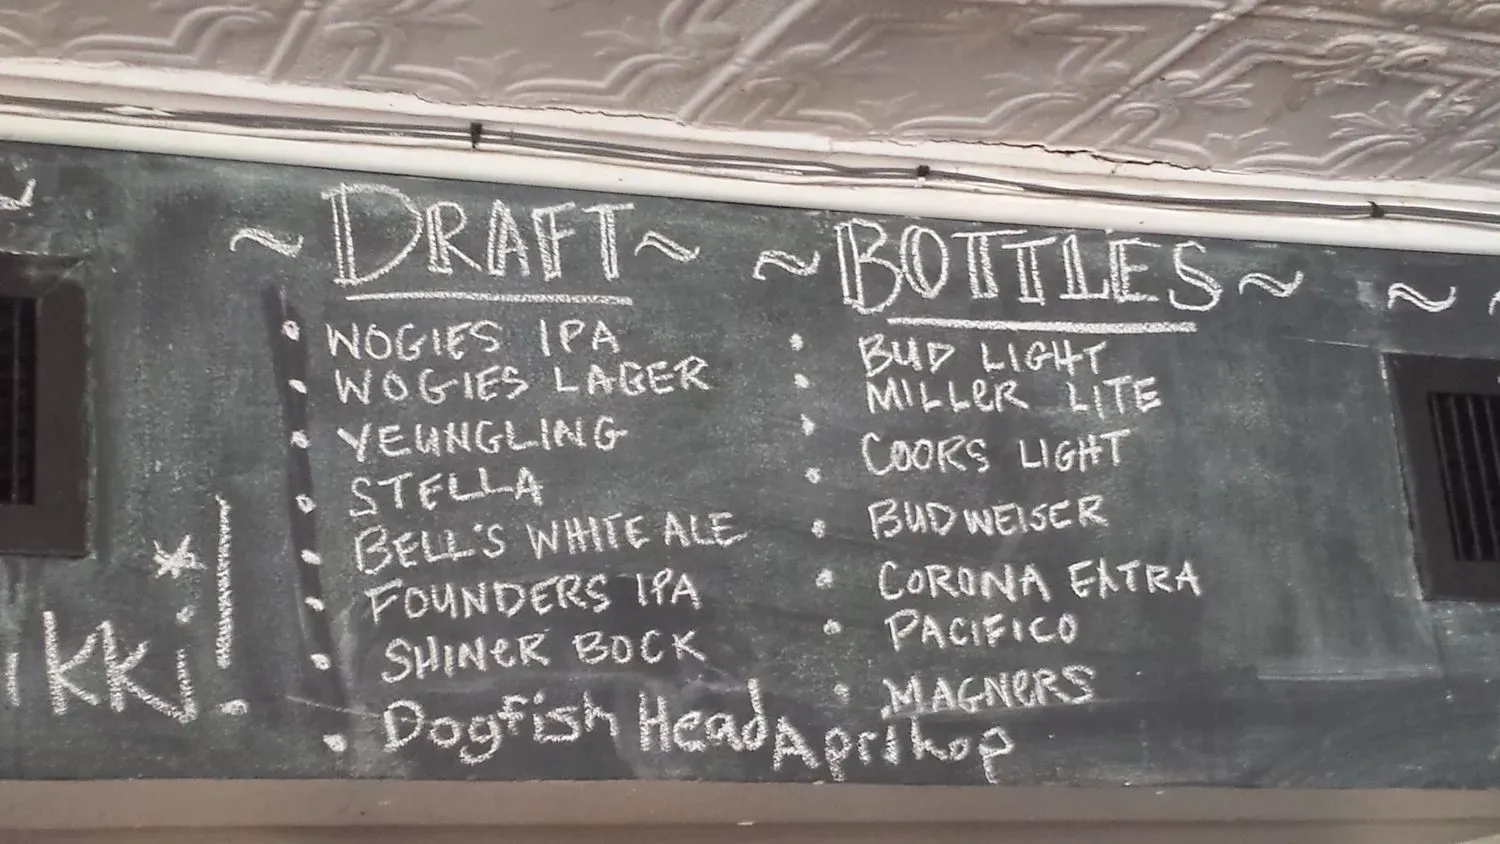 ~ DRAFT ~
• WOGIES IPA
• WOGIES LAGER
• YEUNGLING
• STELLA
• BELL'S WHITE ALE
• FOUNDERS IPA
• SHINER BOCK
• Dogfish Head Aprihop
~ BOTTLES ~
• BUD LIGHT
• MILLER LITE
• COORS LIGHT
• BUDWEISER
• CORONA EXTRA
• PACIFICO
• MAGNERS
ikki!